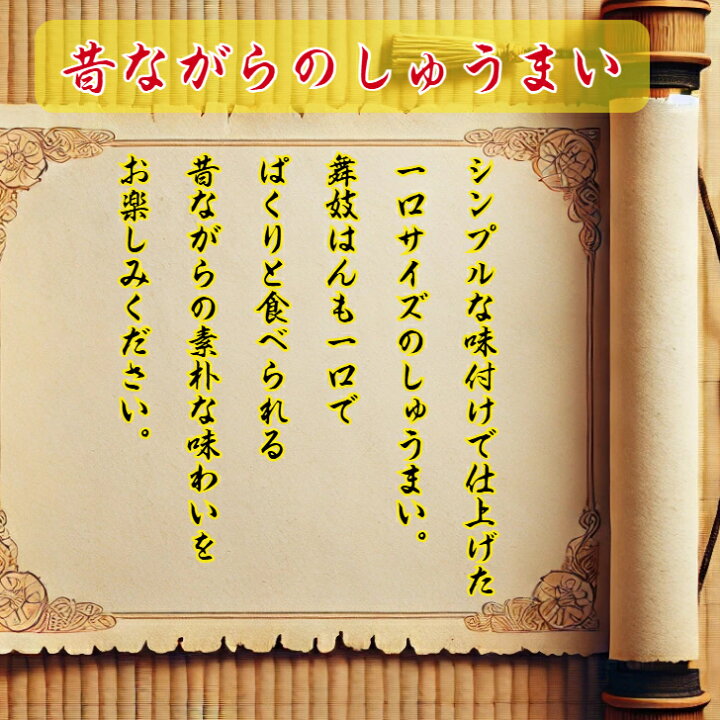 昔ながらのしゅうまい
シンプルな味付けで仕上げた
一口サイズのしゅうまい。
舞妓はんも一口で
ぱくりと食べられる
昔ながらの素朴な味わいを
お楽しみください。